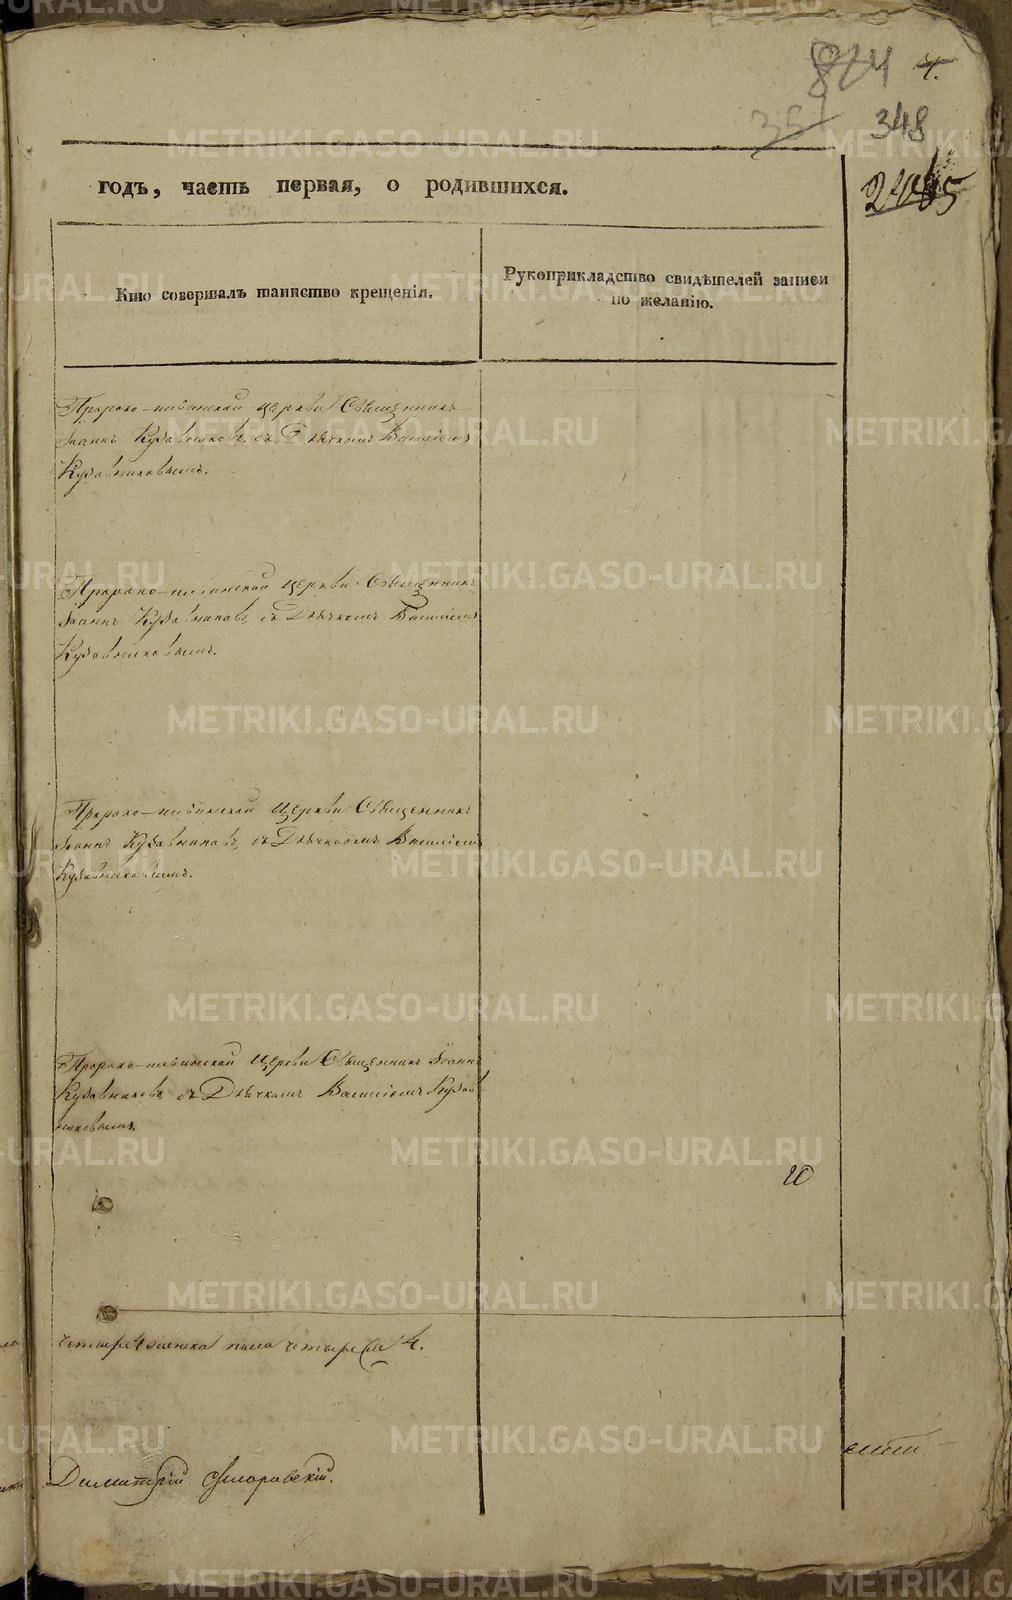 824 4.
351 348
2485
годъ, часть первая, о родившихся.
Кто совершалъ таинство крещенія.
Рукоприкладство свидѣтелей записи
по желанію.
Пророко-ильинской церкви Священникъ
Іоаннъ Кузовниковъ, съ Дьячкомъ Василіемъ
Кузовниковымъ.
Пророко-ильинской церкви Священникъ
Іоаннъ Кузовниковъ, съ Дьячкомъ Василіемъ
Кузовниковымъ.
Пророко-ильинской церкви Священникъ
Іоаннъ Кузовниковъ, съ Дьячкомъ Василіемъ
Кузовниковымъ.
Пророко-ильинской церкви Священникъ Іоаннъ
Кузовниковъ съ Дьячкомъ Василіемъ Кузов
никовымъ.
20
четыре 4 женска пола четыре 4.
Димитрій
METRIKI.GASO-URAL.RU